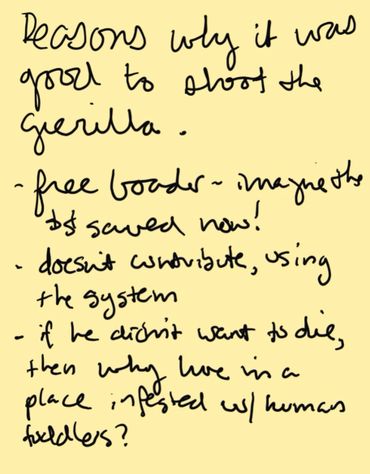 Reasons why it was
good to shoot the
gerilla.
- free loader - imagine the
$$ saved now!
- doesn't contribute, using
the system
- if he didn't want to die,
then why live in a
place infested w/ human
toddlers?